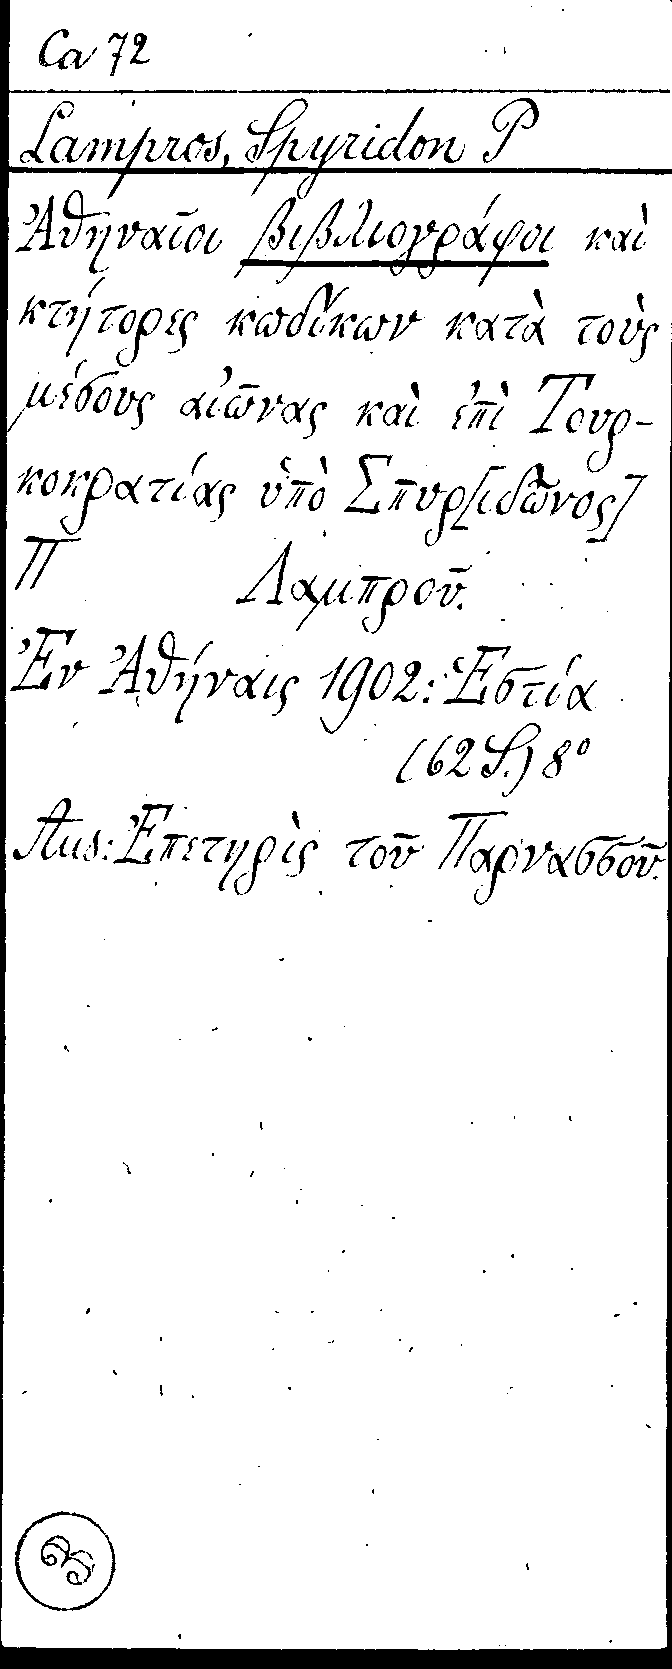 Ca 72
Lampros, Spyridon P
Ἀθηναῖοι βιβλιογράφοι καὶ
κτήτορες κωδίκων κατὰ τοὺς
μέσους αἰῶνας καὶ ἐπὶ Τουρ-
κοκρατίας ὑπὸ Σπυρ[ιδῶνος]
Π Λαμπροῦ.
Ἐν Ἀθήναις 1902: Ἑστία
(62 S.) 8°
Aus: Ἐπετηρὶς τοῦ Παρνασσοῦ.